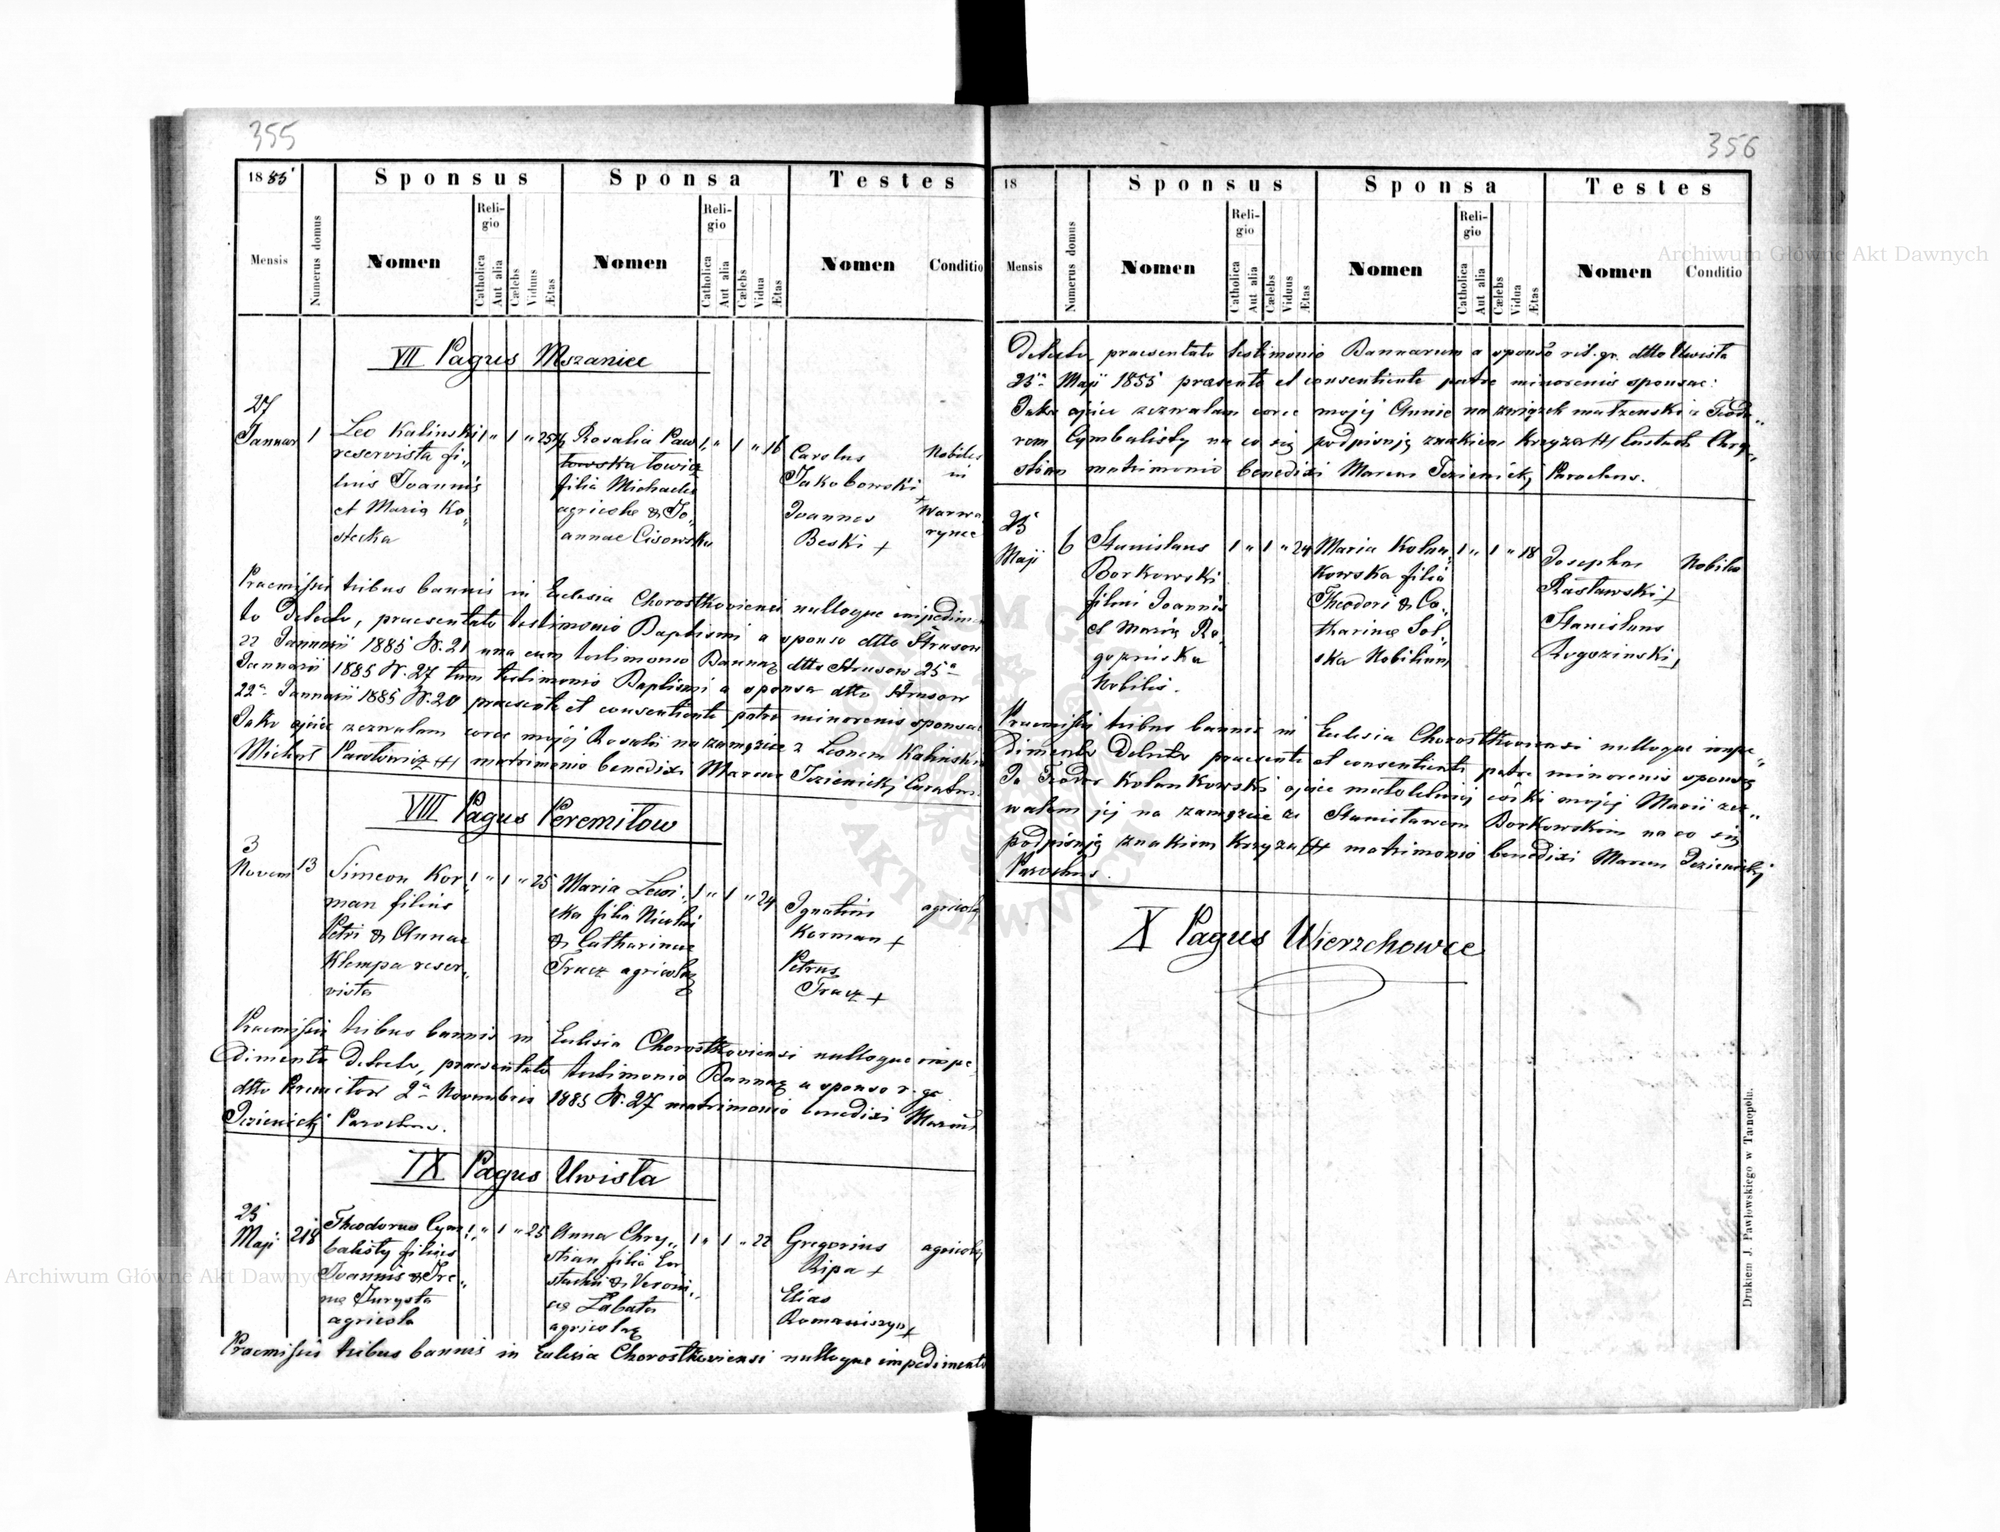 355
1885
Sponsus
Sponsa
Testes
Mensis
Numerus domus
Nomen
Religio
Catholica
Aut alia
Cælebs
Viduus
Ætas
Nomen
Religio
Catholica
Aut alia
Cælebs
Vidua
Ætas
Nomen
Conditio
VII Pagus Mszaniec
27 Januar
1
Leo Kalinski
reservista fi„
lius Joannis
et Maria Ko„
stecka
1 „ 1 „ 25
Rosalia Paw
towska lowicz
filia Michaelis
agricolae & Jo„
annae Cisowska
1 „ 1 „ 16
Carolus
Jakobowski +
Joannes
Beski +
Nobiles
in
Warwa„
rynce
Praemissis tribus bannis in Eclesia Chorostkoviensi nulloque impedimen
to Detecto, praesentato testimonio Baptismi a sponso dtto Strusow
22 Januarii 1885 N. 21 una cum testimonio Bannar dtto Strusow 25a
Januarii 1885 N. 27 tum testimonio Baptismi a sponsa dtto Strusow
22a Januarii 1885 N. 20 praesente et consentiente patre minorenis sponsae
Jako ojciec zezwalam corce mojéj Rosalii na zamęzcie z Leonem Kalinskim
Michał Pawłowicz +++ matrimonio benedixi Marcus Jezienickj Curatus.
VIII Pagus Peremilow
3 Novem
13
Simeon Kor„
man filius
Petri & Annae
Klempa reser„
vista
1 „ 1 „ 25
Maria Lewi„
cka filia Nicolai
& Catharinae
Tracz agricolae
1 „ 1 „ 24
Ignatius
Korman +
Petrus
Tracz +
agricolae
Praemissis tribus bannis in Eclesia Chorostkoviensi nulloque impe„
dimento Detecto, praesentato testimonio Bannar a sponso r. gr.
dtto Peremilow 2a Novembris 1885 N. 27 matrimonio benedixi Marcus
Jezienickj Parochus.
IX Pagus Uwisla
25 Maji
218
Theodorus Cym„
balisty filius
Joannis & Ire„
nae Turysta
agricola
1 „ 1 „ 25
Anna Chry„
stian filia Eu
stachii & Veroni„
cae Labata
agricolae
1 „ 1 „ 22
Gregorius
Ripa +
Elias
Romaniszyn +
agricolae
Praemissis tribus bannis in Eclesia Chorostkoviensi nulloque impedimento
356
18
Sponsus
Sponsa
Testes
Mensis
Numerus domus
Nomen
Religio
Catholica
Aut alia
Cælebs
Viduus
Ætas
Nomen
Religio
Catholica
Aut alia
Cælebs
Vidua
Ætas
Nomen
Conditio
Detecto, praesentato testimonio Bannarum a sponso rit. gr. dtto Uwisla
25a Maji 1885 praesente et consentiente patre minorenis sponsae:
Jako ojciec zezwalam corce mojéj Annie na związek małzenski z Teodo„
rem Cymbalisty na co się podpisuję znakiem krzyza +++ Eustach Chry„
stian matrimonio benedixi Marcus Jezienickj Parochus.
25 Maji
6
Stanislaus
Borkowski
filius Joannis
et Mariae Ro„
goznicka
Nobilis.
1 „ 1 „ 24
Maria Kolan„
kowska filia
Theodori & Ca„
tharinae Sol„
ska Nobilium
1 „ 1 „ 18
Josephus
Rasławski +
Stanislaus
Rogozinski
Nobiles
Praemissis tribus bannis in Eclesia Chorostkoviensi nulloque impe„
dimento Detecto praesente et consentiente patre minorenis sponsae
Ja Teodor Kolankowski ojciec małoletniej córki mojéj Marii zez„
walam jej na zamęzcie ze Stanisławem Borkowskim na co się
podpisuję znakiem krzyza +++ matrimonio benedixi Marcus Jezienickj
Parochus.
X Pagus Wierzchowce
Drukiem J. Pawłowskiego w Tarnopolu.
Archiwum Główne Akt Dawnych
Archiwum Główne Akt Dawnych